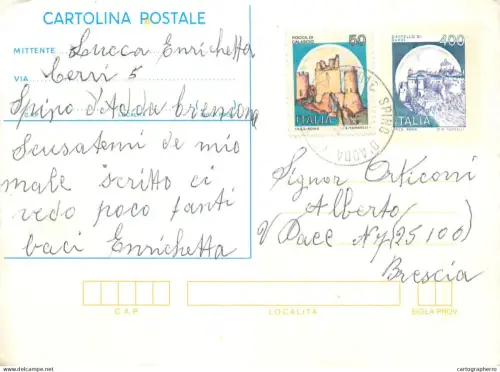 CARTOLINA POSTALE
MITTENTE Lucca Enrichetta
VIA Cervi 5
Spino d'Adda Cremona
Scusatemi de mio
male scritto ci
vedo poco tanti
baci Enrichetta
ROCCA DI
CALASCIO
50
ITALIA
CASTELLO DI
400
ITALIA
SPINO D'ADDA
Signor Orticoni
Alberto
V Pace N 7 (25100)
Brescia
C.A.P.
LOCALITÀ
SIGLA PROV.
cartographerro